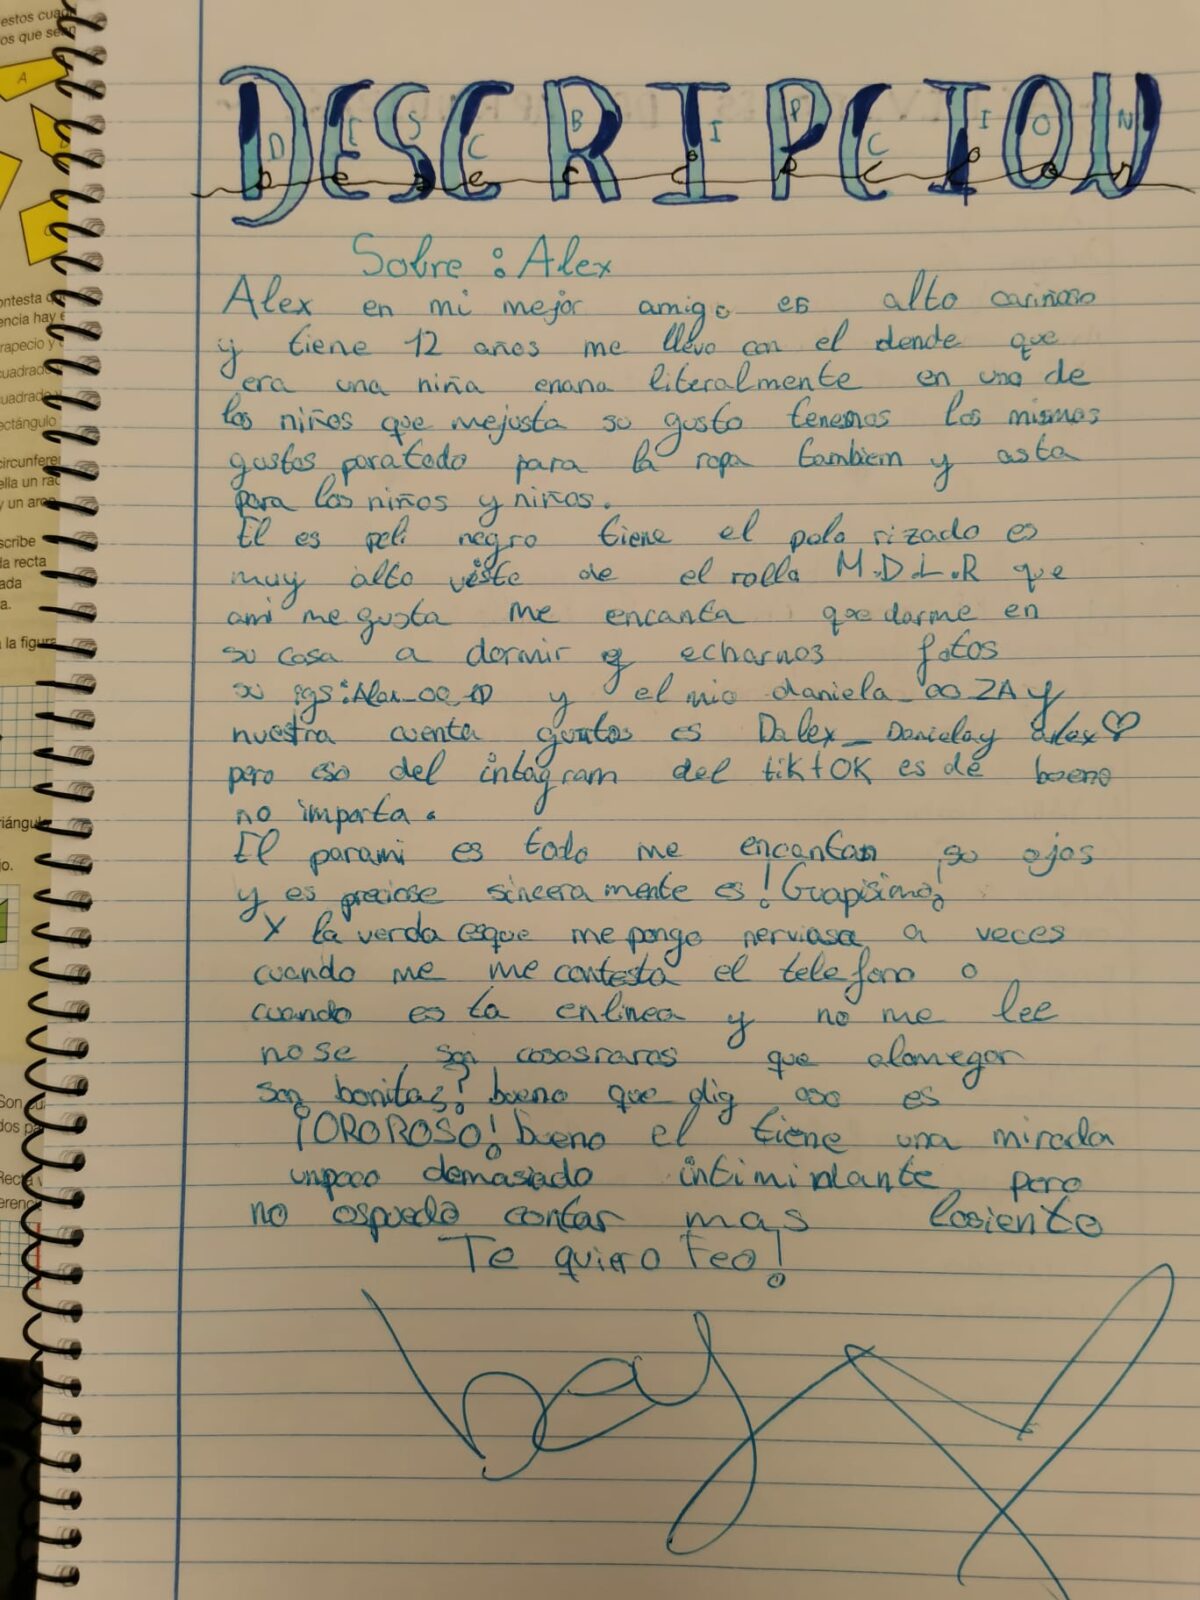 estos cuad
os que sean
A
DESCRIPCION
D E S C R I P C I O N
Descripcion
Sobre : Alex
ontesta
encia hay
Alex en mi mejor amigo es alto cariñoso
rapecio y
y tiene 12 años me llevo con el dende que
cuadrado
era una niña enana literalmente en uno de
cuadrado
los niños que mejusta su gusto tenemos los mismos
ectángulo
gustos paratodo para la ropa tambiem y asta
circunferen
ella un rad
para los niños y niños.
y un arco
El es peli negro tiene el polo rizado es
scribe
da recta
muy alto viste de el rollo M.D.L.R que
ada
a.
ami me gusta me encanta quedarme en
a la figura
su casa a dormir y echarnos fotos
su igs:Alex_00_10 y el mio daniela_00ZA y
nuestra cuenta guntos es Dalex_Danielay alex♡
pero eso del intagram del tiktOK es de bueno
no importa.
riángulo
El parami es todo me encantan su ojos
jo.
y es preciose sinceramente es ! Guapisimo!
Y la verda esque me pongo nerviosa a veces
cuando me me contesta el telefono o
cuando es ta enlinea y no me lee
nose son cosasraras que alomegor
Son
dos pa
son bonitas? bueno que dig oso es
¡OROROSO! bueno el tiene una mirada
Recta
unpoco demasiado intimidante pero
erenci
no ospuedo contar mas losiento
Te quiero Feo!